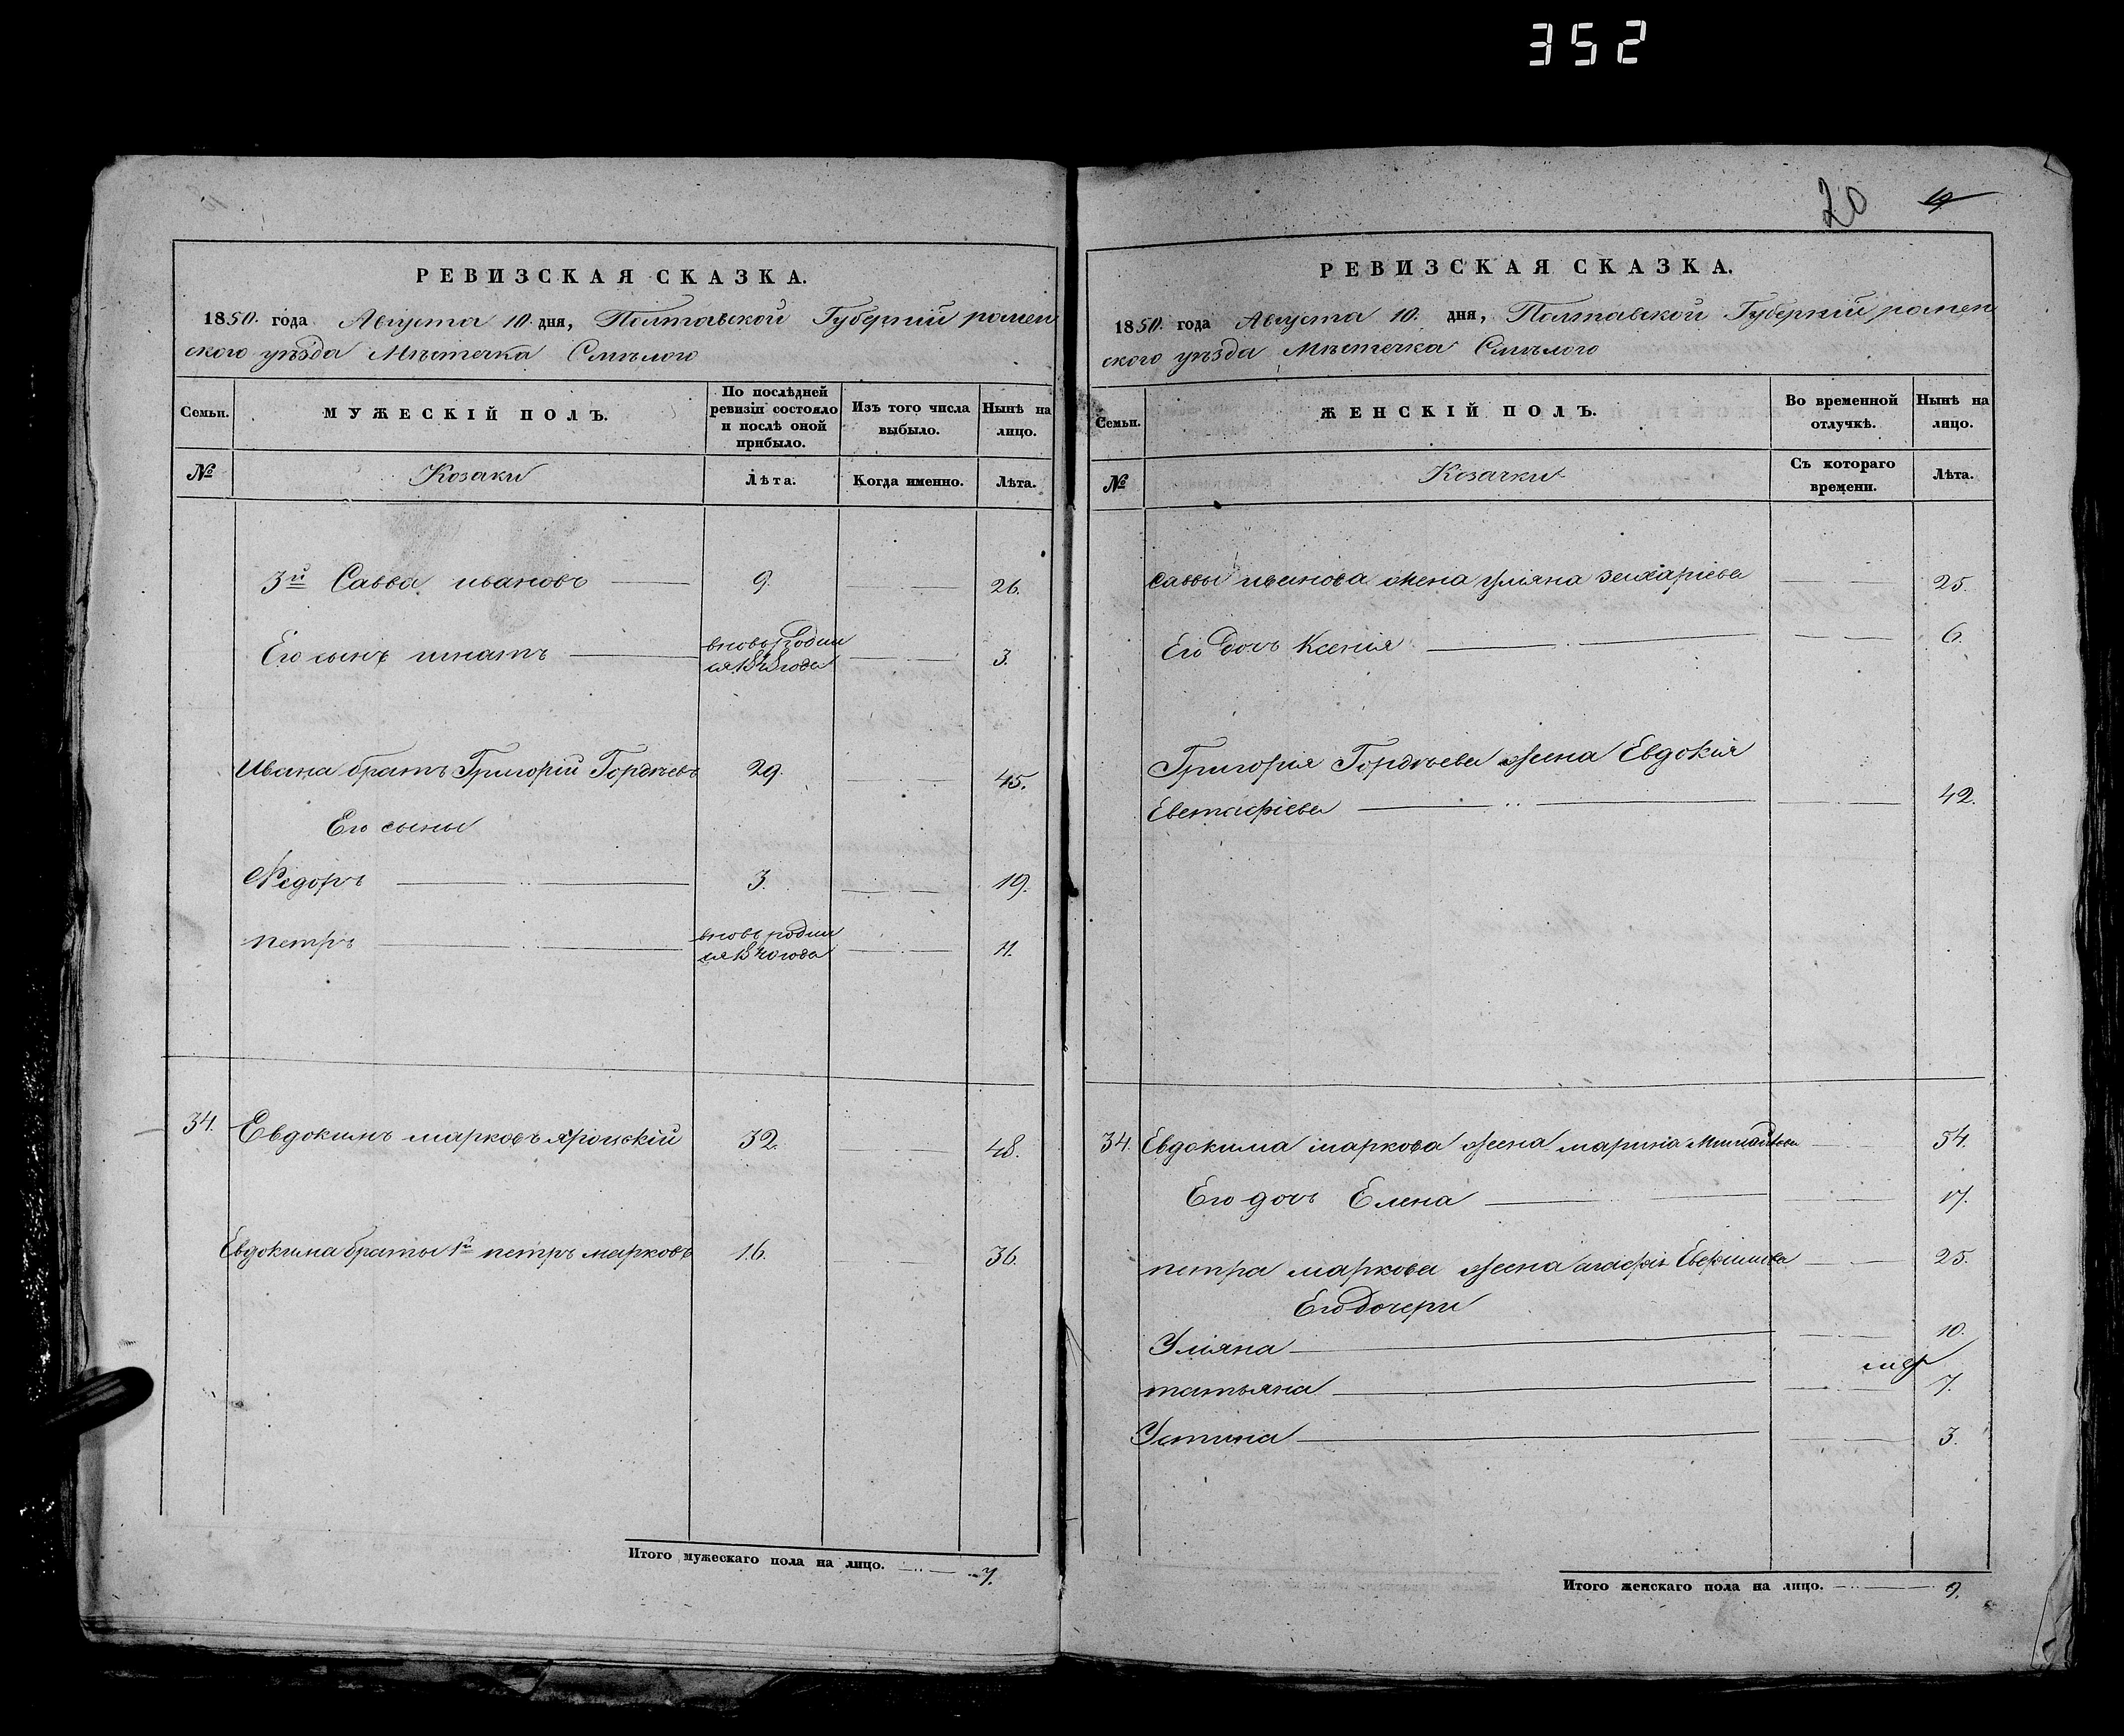 352
РЕВИЗСКАЯ СКАЗКА.
1850. года Августа 10. дня, Полтавской Губерніи ромен
ского уѣзда Мѣстечка Смѣлого
Семьи.
МУЖЕСКІЙ ПОЛЪ.
По послѣдней ревизіи состояло и послѣ оной прибыло.
Изъ того числа выбыло.
Нынѣ на лицо.
№
Козаки
Лѣта.
Когда именно.
Лѣта.
3й Савва ивановъ 9. 26.
Его сынъ игнатъ вновь родил 3.
ся В года
Ивана братъ Григорій Гордѣевъ 29. 45.
Его сыны
Ѳедоръ 3. 19.
петръ вновь родил 11.
ся В 40 года
34. Евдокимъ марковъ 32. 48.
Евдокима браты 1й петръ марковъ 16. 36.
Итого мужескаго пола на лицо. 7.
20 19
РЕВИЗСКАЯ СКАЗКА.
1850. года Августа 10. дня, Полтавской Губерніи ромен
ского уѣзда Мѣстечка Смѣлого
Семьи.
ЖЕНСКІЙ ПОЛЪ.
Во временной отлучкѣ.
Нынѣ на лицо.
№
Козачки
Съ котораго времени.
Лѣта.
Саввы иванова жена уліяна захаріева 25.
Его дочь Ксенія 6.
Григорія Гордѣева жена Евдокія
Евстафіева 42.
34. Евдокима маркова жена марина 54.
Его дочь Елена 17.
петра маркова жена агафія 25.
Его дочери
Уліяна 10.
татьяна 7.
Устина 3.
Итого женскаго пола на лицо. 9.